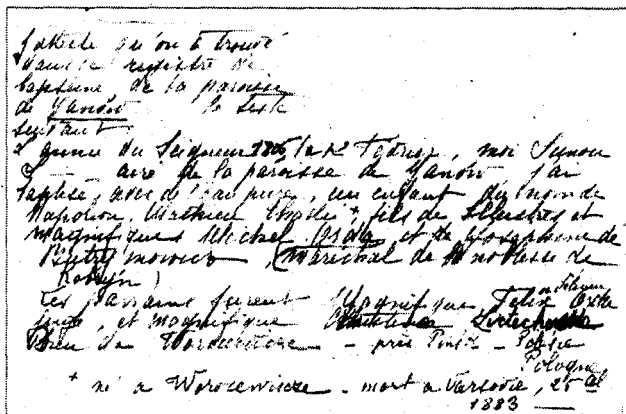 J'atteste qu'on a trouvé
dans le registre de
baptême de la paroisse
de Janów le texte
suivant
L'année du Seigneur le 12 , moi
curé de la paroisse de Janów j'ai
baptisé, avec de l'eau pure, un enfant du nom de
Napoléon, Mathieu +, fils de Illustres et
Magnifiques Michel Orda et de Josephine de
Butrymowicz (Maréchal de la noblesse de
Kobryn)
Les parrains furent Magnifique Felix Orda
, et magnifique
de Worocewicze - près Pinsk - Polesie
Pologne
+ né a Worocewicze - mort a Varsovie, 25
1883